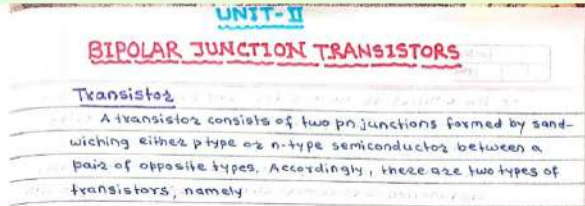 UNIT-II
BIPOLAR JUNCTION TRANSISTORS
Transistor
A transistor consists of two pn junctions formed by sand-
wiching either p type or n-type semiconductor between a
pair of opposite types. Accordingly, there are two types of
transistors, namely